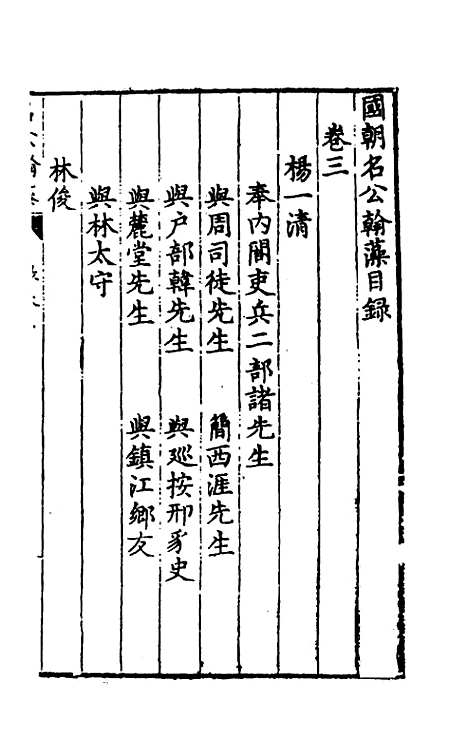 國朝名公翰藻目録
卷三
楊一清
奉內閣吏兵二部諸先生
與周司徒先生　簡西涯先生
與户部韓先生　與廵按邢豸史
與麓堂先生　與鎮江鄉友
與林太守
林俊